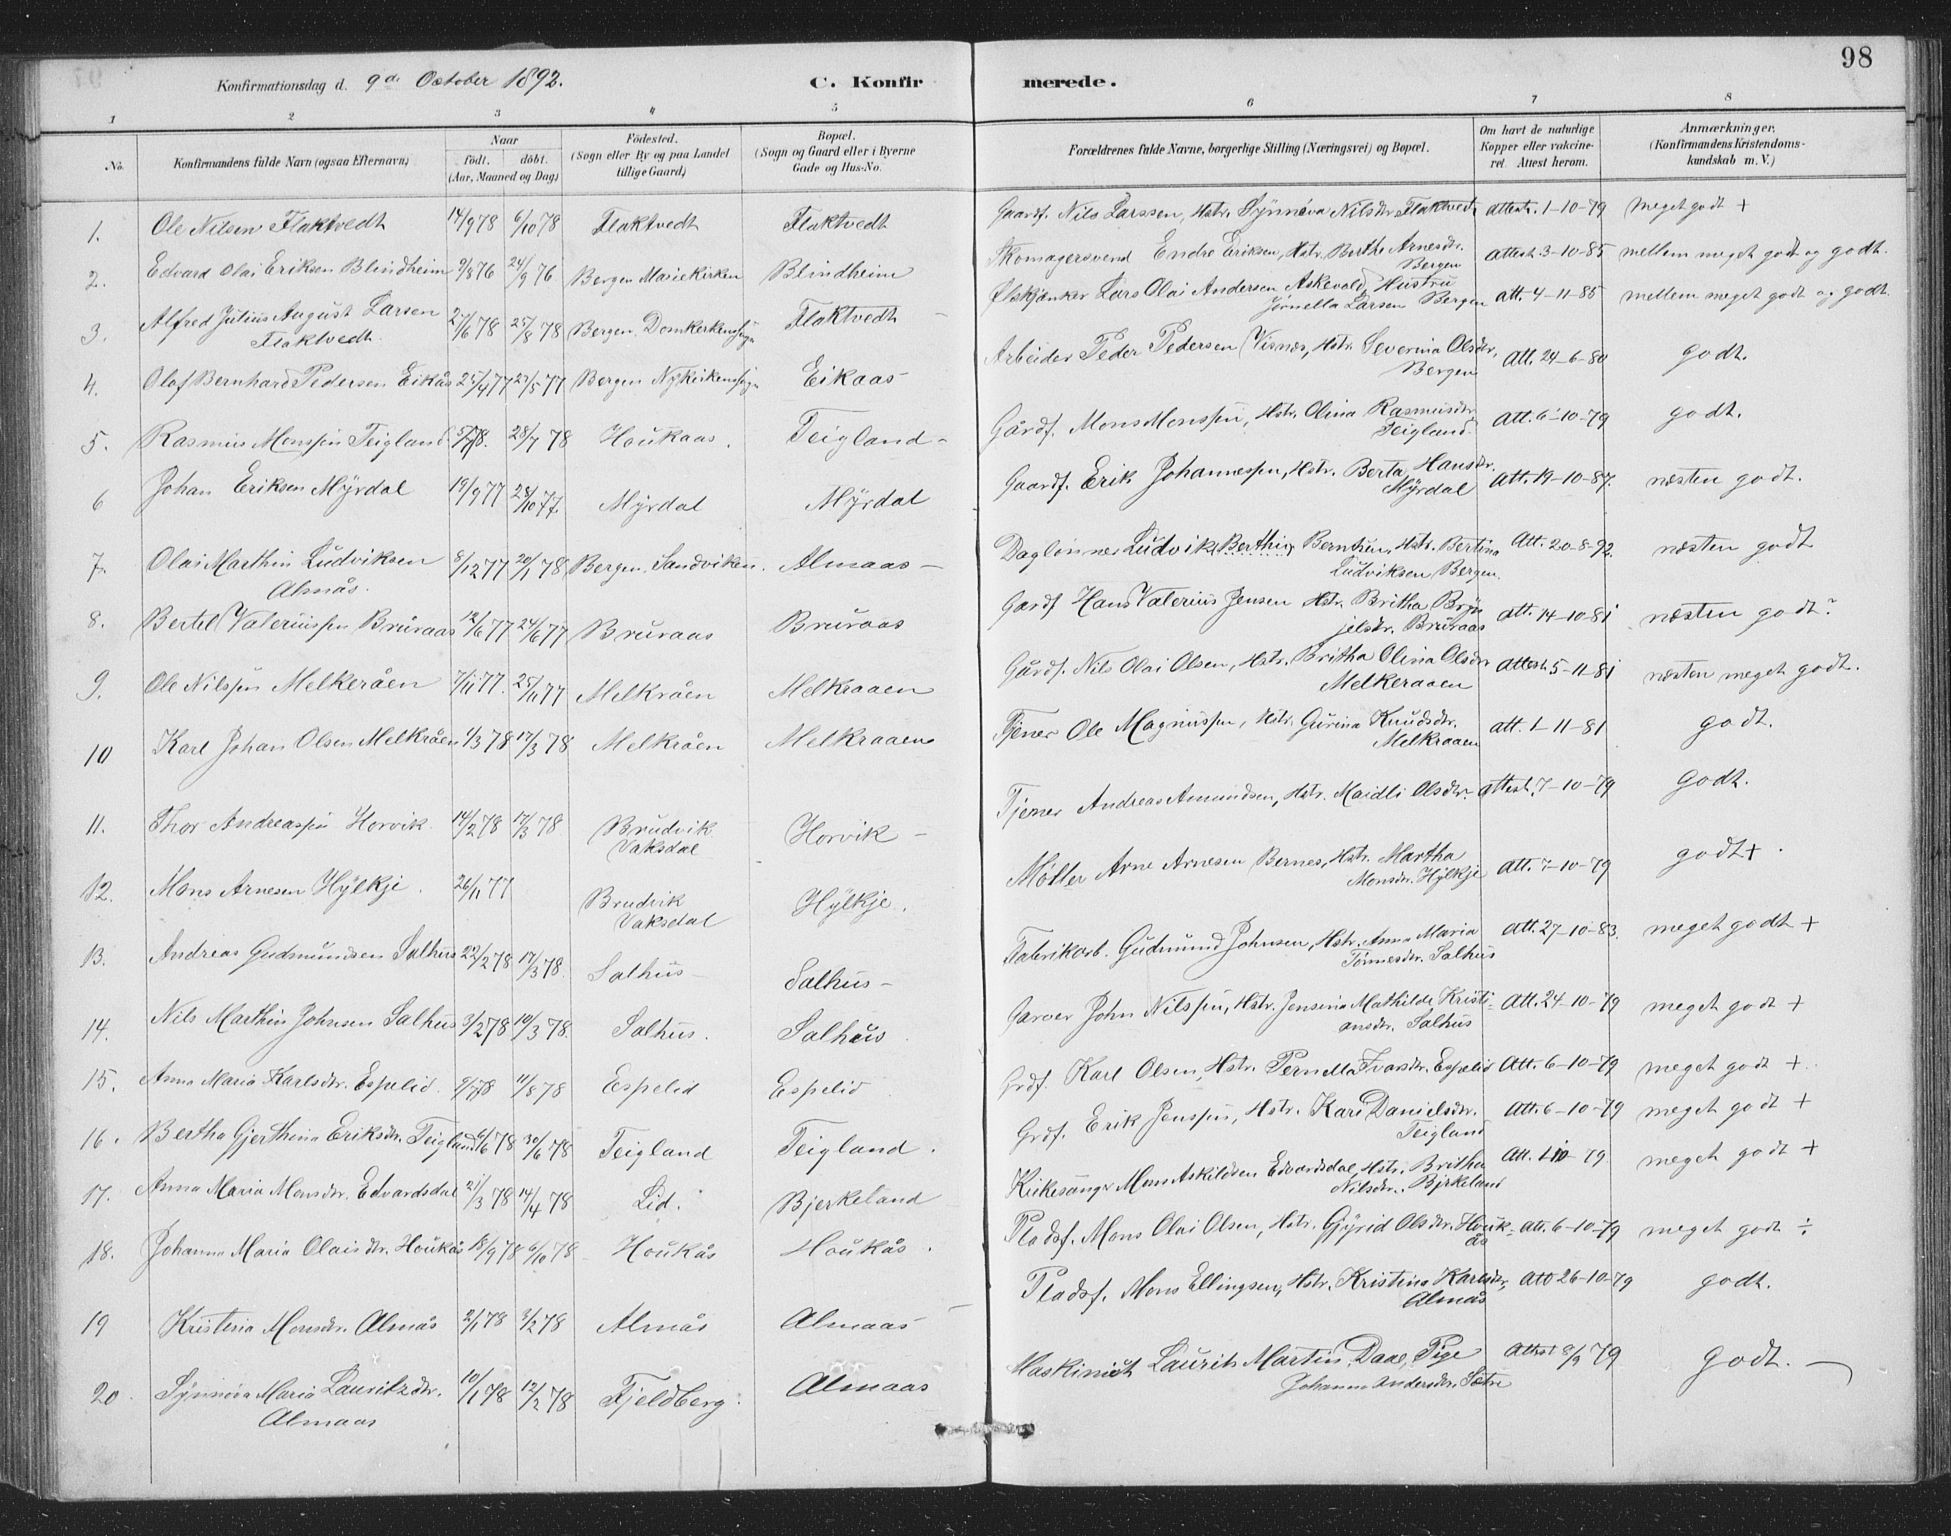 98
Konfirmationsdag d. 9de October 1892.
C. Konfirmerede.
1 2 3 4 5 6 7 8
No.
Konfirmandens fulde Navn (ogsaa Efternavn)
Naar
födt. döbt.
(Aar, Maaned og Dag)
Födested.
(Sogn eller By og paa Landet
tillige Gaard)
Bopæl.
(Sogn og Gaard eller i Byerne
Gade og Hus-No.
Forældrenes fulde Navne, borgerlige Stilling (Næringsvei) og Bopæl.
Om havt de naturlige
Kopper eller vakcine-
ret. Attest herom.
Anmærkninger.
(Konfirmandens Kristendoms-
kundskab m. V.)
1. Ole Nilsen Flaktvedt 14/9 78 6/10 78 Flaktvedt Flaktvedt Gaardf. Nils Larssen, Hstr. Synnøva Nilsdr. Flaktvedt attest. 1-10-79 Meget godt +
2. Edvard Olai Eriksen Blindheim 9/8 76 24/9 76 Bergen Mariekirken Blindheim Skomagersvend Endre Eriksen, Hstr. Berthe Arnesdr. attest. 3-10-85 mellem meget godt og godt.
Bergen
3. Alfred Julius August Larsen 27/6 78 25/8 78 Bergen Domkerkensogn Flaktvedt Ølskjænker Lars Olai Andersen Askevold, Hustru att. 4-11-85 mellem meget godt og godt.
Flaktvedt Jørnella Larsen Bergen
4. Olaf Bernhard Pedersen Eikås 25/4 77 27/5 77 Bergen Nykirkensogn Eikaas Arbeider Peder Pedersen Visnes, Hstr. Severina Olsdr. Att. 24-6-80 godt.
Bergen
5. Rasmus Monssen Teigland 5/7 78. 28/7 78 Houkaas. Teigland Gårdf. Mons Monssen, Hstr. Olina Rasmusdr. Att. 6-10-79 godt.
Teigland
6 Johan Eriksen Myrdal 19/9 77 28/10 77. Myrdal Myrdal Gaardf. Erik Johannessen, Hstr. Berta Hansdr. Att. 19-10-87. næsten godt.
Myrdal
7. Olai Marthin Ludviksen 8/12 77 20/1 78 Bergen. Sandviken. Almaas Daglønner Ludvik Berthin Berntsen, Hstr. Bertina Att. 20-8-92. næsten godt
Almås. Ludviksen Bergen.
8. Bertel Valeriussen Bruraas 12/6 77 24/6 77 Bruraas Bruraas Gardf Hans Valerius Jensen Hstr. Britha Bryn- att. 14-10-81 næsten godt.
jelsdr. Bruraas
9. Ole Nilssen Melkeråen 7/11 77. 25/11 77 Melkråen Melkraaen Gårdf. Nils Olai Olsen, Hstr. Britha Olina Olsdr. Attest. 5-11-81 næsten meget godt.
Melkeraaen
10 Karl Johan Olsen Melkråen 1/3 78 17/3 78 Melkråen Melkraaen Tjener Ole Magnussen, Hstr. Gurina Knudsdr. att. 1-11-81 godt.
Melkraaen
11. Thor Andreassen Horvik 14/2 78 17/3 78 Brudvik Horvik Tjener Andreas Amundsen, Hstr. Maidli Olsdtr. attest. 7-10-79 Godt.
Vaksdal
12. Mons Arnesen Hylkje. 26/11 77 Brudvik Hylkje. Møller Arne Arnesen Bernes, Hstr. Martha att. 7-10-79 godt +
Vaksdal Monsdr. Hylkje
13. Andreas Gudmundsen Salhus 22/2 78 17/3 78. Salhus Salhus Fabrikarb. Gudmund Johnsen, Hstr. Anna Maria Att. 27-10-83. meget godt +
Tønnesdr. Salhus
14. Nils Marthin Johnsen Salhus 3/2 78 10/3 78. Salhus. Salhus Garver John Nilssen, Hstr. Jensina Mathilde Kristi- Att. 24-10-79 meget godt +
ansdr. Salhus
15. Anna Maria Karlsdtr. Espelid. 9/7 78 11/8 78 Espelid Espelid Grdf. Karl Olsen, Hstr. Pernella Ivarsdr. Espelid Att. 6-10-79 meget godt +
16. Bertha Gjerthina Eriksdr. Teigland 6/6 78 30/6 78 Teigland Teigland. Grdf. Erik Jenssen, Hstr. Kari Danielsdr. att. 6-10-79 meget godt +
Teigland
17. Anna Maria Monsdr. Edvardsdal 21/3 78 14/4 78 Lid. Bjerkeland Kirkesanger Mons Askildsen Edvardsdal, Hstr. Britha att. 1-10-79 meget godt +
Nilsdr. Bjerkeland
18. Johanna Maria Olaisdr. Houkås 18/9 78 6/10 78 Houkås Houkås. Pladsf. Mons Olai Olsen, Hstr. Gjyrid Olsdtr. Houk- att. 6-10-79 meget godt ÷
ås
19 Kristina Monsdr. Almås 2/1 78 3/2 78 Almås Almaas Pladsf. Mons Ellingsen, Hstr. Kristina Karlsdr. Att 26-10-79 godt.
Almås
20. Synnøva Maria Lauritzdr. 10/1 78 12/2 78 Fjeldberg. Almaas Maskinist Laurits Martin Daae, Pige attest 8/9 79 Godt.
Almaas Johanna Andersdr. Sætre